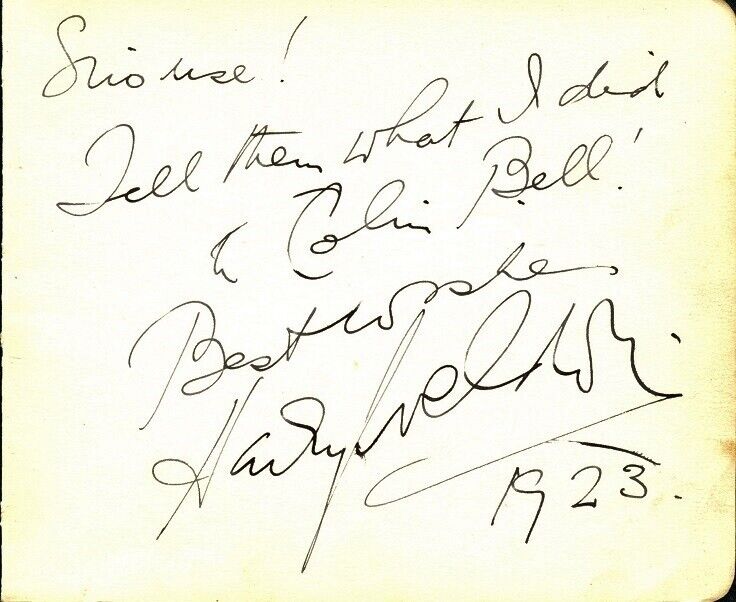 Sno use!
Tell them what I did
to Colin Bell!
Best wishes
Harry Weldon
1923.